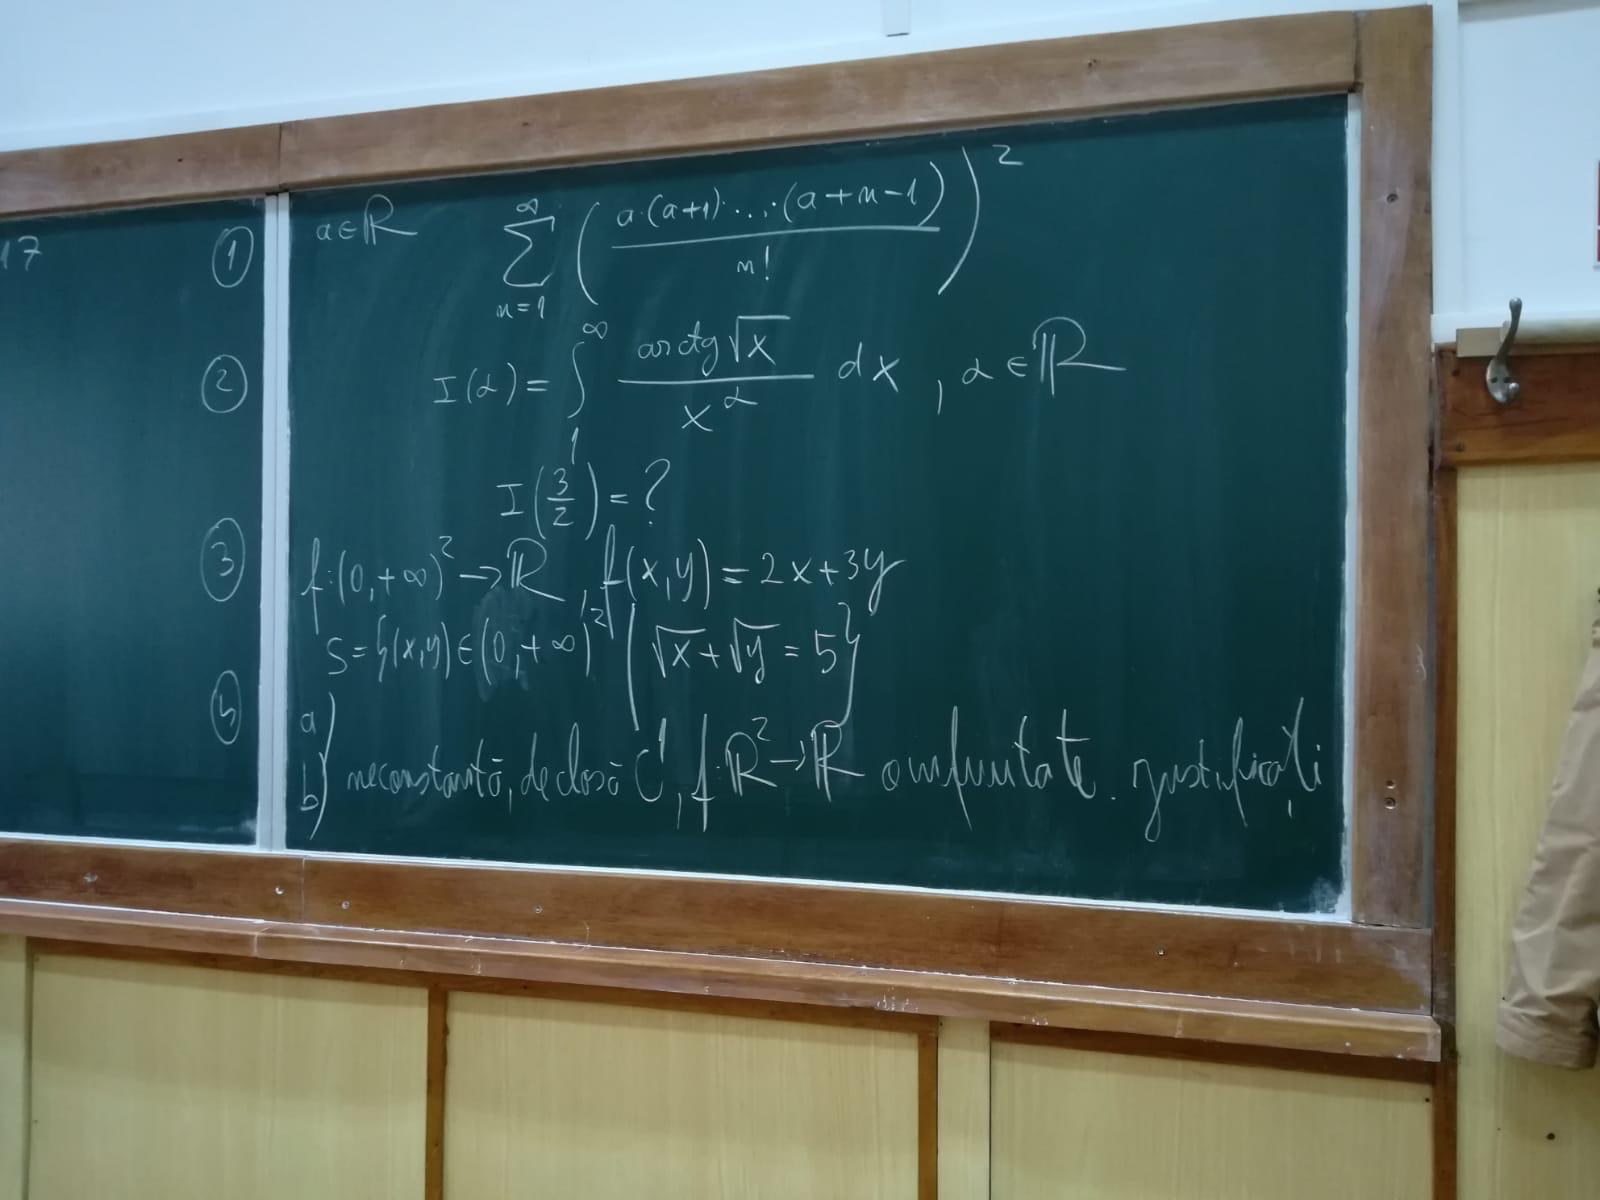 17
① a∈ℝ ∑_{n=1}^{∞} (a·(a+1)·...·(a+n-1) / n!)²
② I(α) = ∫_1^∞ arctg√x / x^α dx, α∈ℝ
I(3/2) = ?
③ f:(0,+∞)² → ℝ, f(x,y) = 2x+3y
S = {(x,y)∈(0,+∞)² | √x+√y = 5}
a)
b) neconstantă, de clasă C¹, f:ℝ²→ℝ justificați